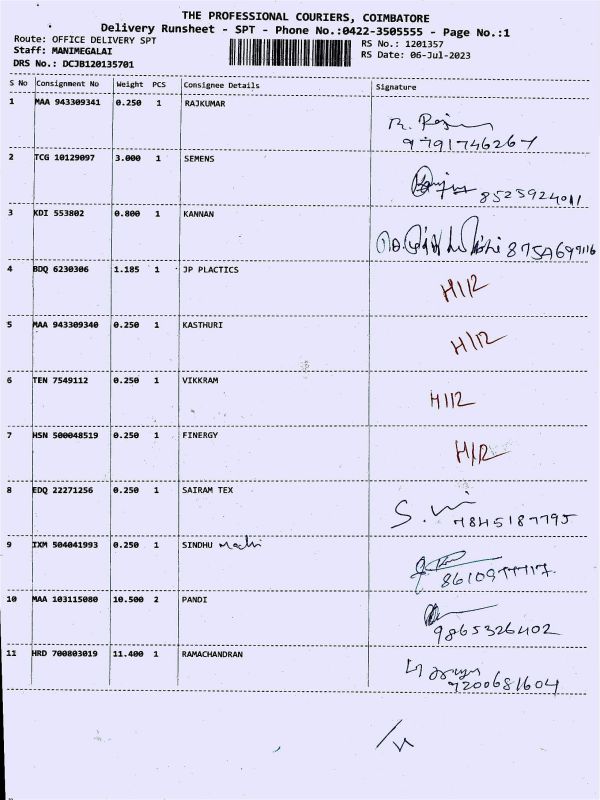 THE PROFESSIONAL COURIERS, COIMBATORE
Delivery Runsheet - SPT - Phone No.:0422-3505555 - Page No.:1
Route: OFFICE DELIVERY SPT RS No.: 1201357
Staff: MANIMEGALAI RS Date: 06-Jul-2023
DRS No.: DCJB120135701
S No Consignment No Weight PCS Consignee Details Signature
1 MAA 943309341 0.250 1 RAJKUMAR
9791746267
2 TCG 10129097 3.000 1 SEMENS
8525924011
3 KDI 553802 0.800 1 KANNAN
4 BDQ 6230306 1.185 1 JP PLACTICS H/12
5 MAA 943309340 0.250 1 KASTHURI H/12
6 TEN 7549112 0.250 1 VIKKRAM H/12
7 HSN 500048519 0.250 1 FINERGY H/12
8 EDQ 22271256 0.250 1 SAIRAM TEX
7845187795
9 IXM 504041993 0.250 1 SINDHU
10 MAA 103115080 10.500 2 PANDI
9865326402
11 HRD 700803019 11.400 1 RAMACHANDRAN
9200681604